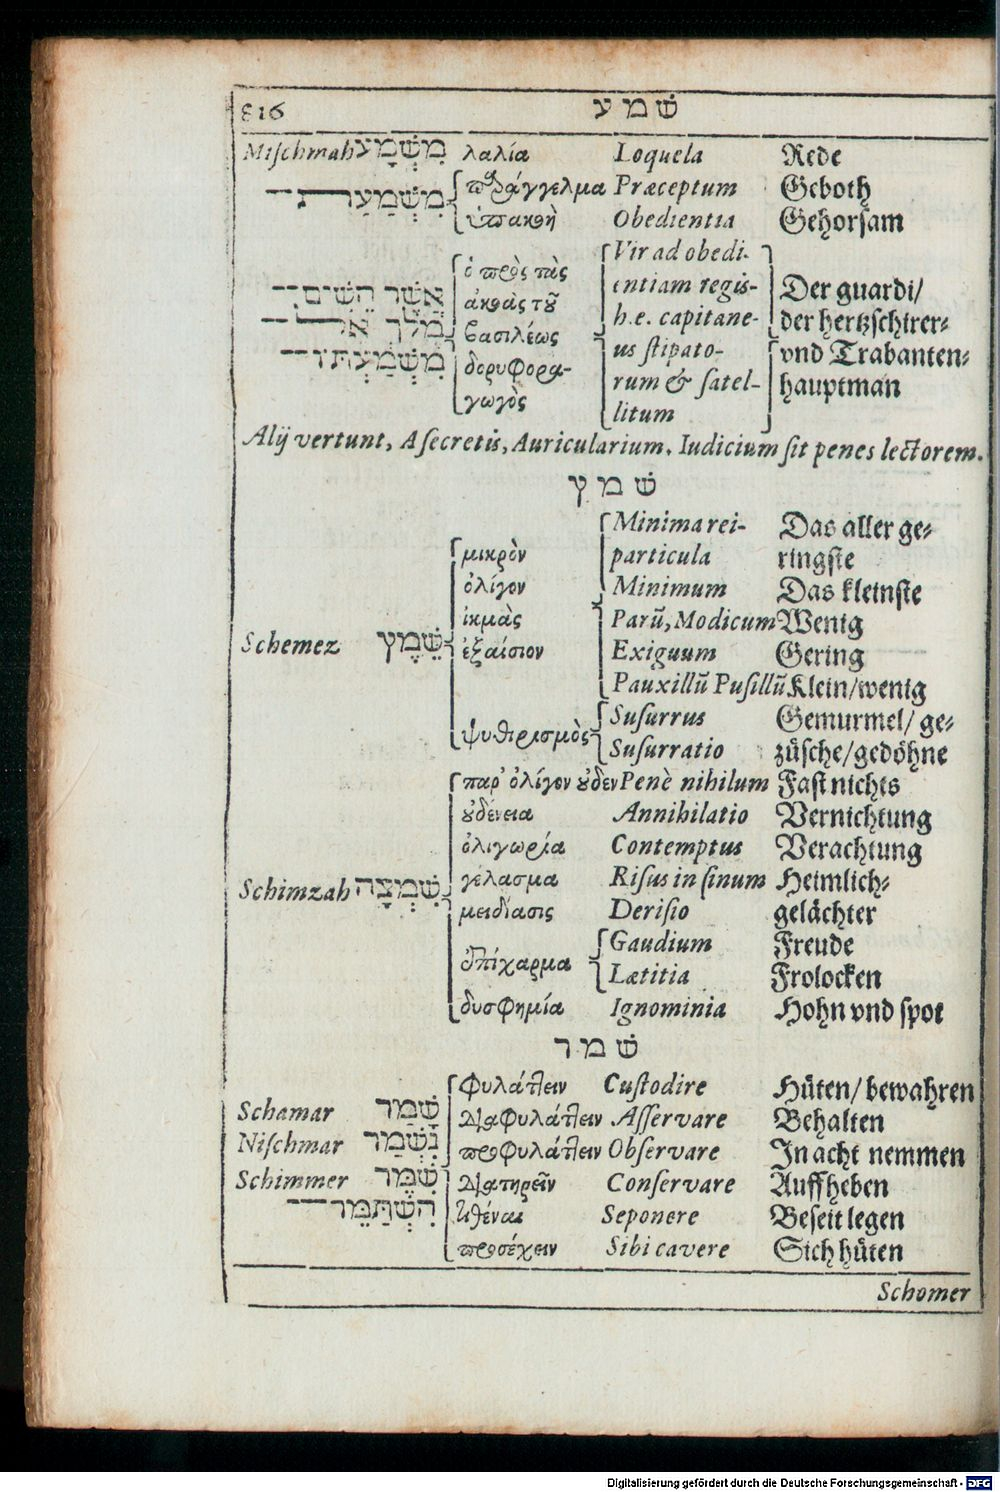 816 שׁמע
Miſchmah מִשְׁמָע λαλία Loquela Rede
מִשְׁמַעַת παράγγελμα Præceptum Geboth
ὑπακοὴ Obedientia Gehorſam
Vir ad obedi-
ὁ πρὸς πὰς entiam regis- Der guardi/
ἀκοὰς τοῦ h.e. capitane- der hertzſchirer-
βασιλέως us ſtipato- vnd Trabanten-
מִשְׁמַעְתּוֹ δορυφορα- rum & ſatel- hauptman
γωγὸς litum
Alij vertunt, A ſecretis, Auricularium. Iudicium ſit penes lectorem.
שׁמץ
Minima rei- Das aller ge-
μικρὸν particula ringſte
ὀλίγον Minimum Das kleinſte
ἰκμὰς Parũ, Modicum Wenig
Schemez שֶׁמֶץ ἐξαίσιον Exiguum Gering
Pauxillũ Puſillũ Klein/wenig
Suſurrus Gemurmel/ ge-
ψυθιρισμὸς Suſurratio züſche/gedöhne
παρ' ὀλίγον οὐδεν Penè nihilum Faſt nichts
οὐδένεια Annihilatio Vernichtung
ὀλιγωρία Contemptus Verachtung
γέλασμα Riſus in ſinum Heimlich-
Schimzah שִׁמְצָה μειδίασις Deriſio gelächter
Gaudium Freude
ἐπίχαρμα Lætitia Frolocken
δυσφημία Ignominia Hohn vnd ſpot
שׁמר
φυλάττειν Cuſtodire Hüten/ bewahren
Schamar שָׁמַר διαφυλάττειν Aſſervare Behalten
Niſchmar נִשְׁמַר προφυλάττειν Obſervare In acht nemmen
Schimmer שִׁמֵּר διατηρεῖν Conſervare Auffheben
הִשְׁתַּמֵּר τιθέναι Seponere Beſeit legen
προσέχειν Sibi cavere Sich hüten
Schomer
Digitalisierung gefördert durch die Deutsche Forschungsgemeinschaft - DFG